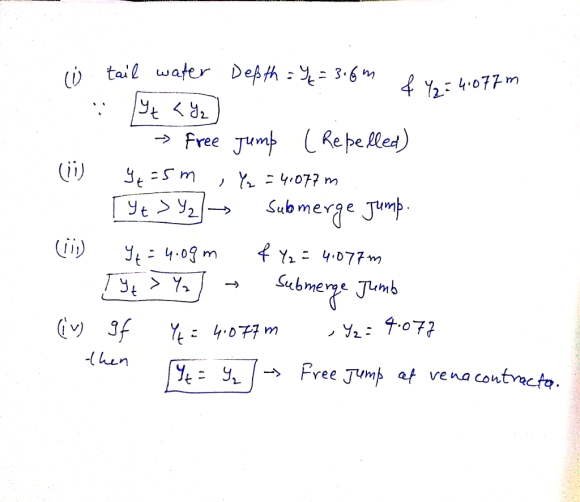 (i) tail water Depth = Yt = 3.6 m & Y2 = 4.077 m
∵ Yt < Y2
→ Free Jump (Repelled)
(ii) Yt = 5 m , Y2 = 4.077 m
Yt > Y2 → Submerge Jump.
(iii) Yt = 4.09 m & Y2 = 4.077 m
Yt > Y2 → Submerge Jumb
(iv) If Yt = 4.077 m , Y2 = 4.077
then
Yt = Y2 → Free Jump at vena contracta.